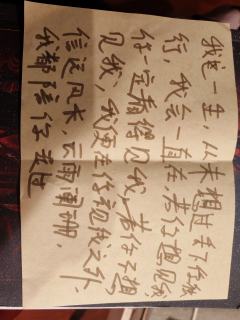 我这一生，从未想过丢下你独
行，我会一直在，若你想见我
你一定看得见我，若你不想
见我，我便在你视线之外.
风水，云雨
我都陪你走过